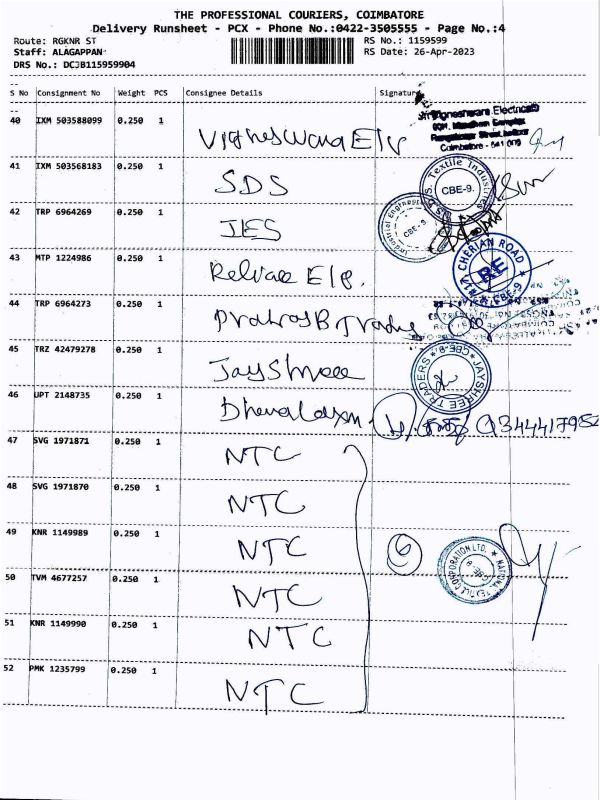 THE PROFESSIONAL COURIERS, COIMBATORE
Delivery Runsheet - PCX - Phone No.:0422-3505555 - Page No.:4
Route: RGKNR ST RS No.: 1159599
Staff: ALAGAPPAN RS Date: 26-Apr-2023
DRS No.: DCJB115959904
S No Consignment No Weight PCS Consignee Details Signature
40 IXM 503588099 0.250 1 Vigneswara Ele
Vigneshwara Electricals
Coimbatore - 641 009
41 IXM 503568183 0.250 1 SDS
S.D.S. Textile Industries CBE-9.
42 TRP 6964269 0.250 1 JES
Industrial Engineering CBE-9.
43 MTP 1224986 0.250 1 Ele.
CHERIAN ROAD CBE-9
44 TRP 6964273 0.250 1
45 TRZ 42479278 0.250 1 Jayshree
JAYSHREE TRADERS CBE-9
46 UPT 2148735 0.250 1
47 SVG 1971871 0.250 1 NTC
48 SVG 1971870 0.250 1 NTC
49 KNR 1149989 0.250 1 NTC
6
NATIONAL TEXTILE CORPORATION LTD. CBE-9
50 TVM 4677257 0.250 1 NTC
51 KNR 1149990 0.250 1 NTC
52 PMK 1235799 0.250 1 NTC